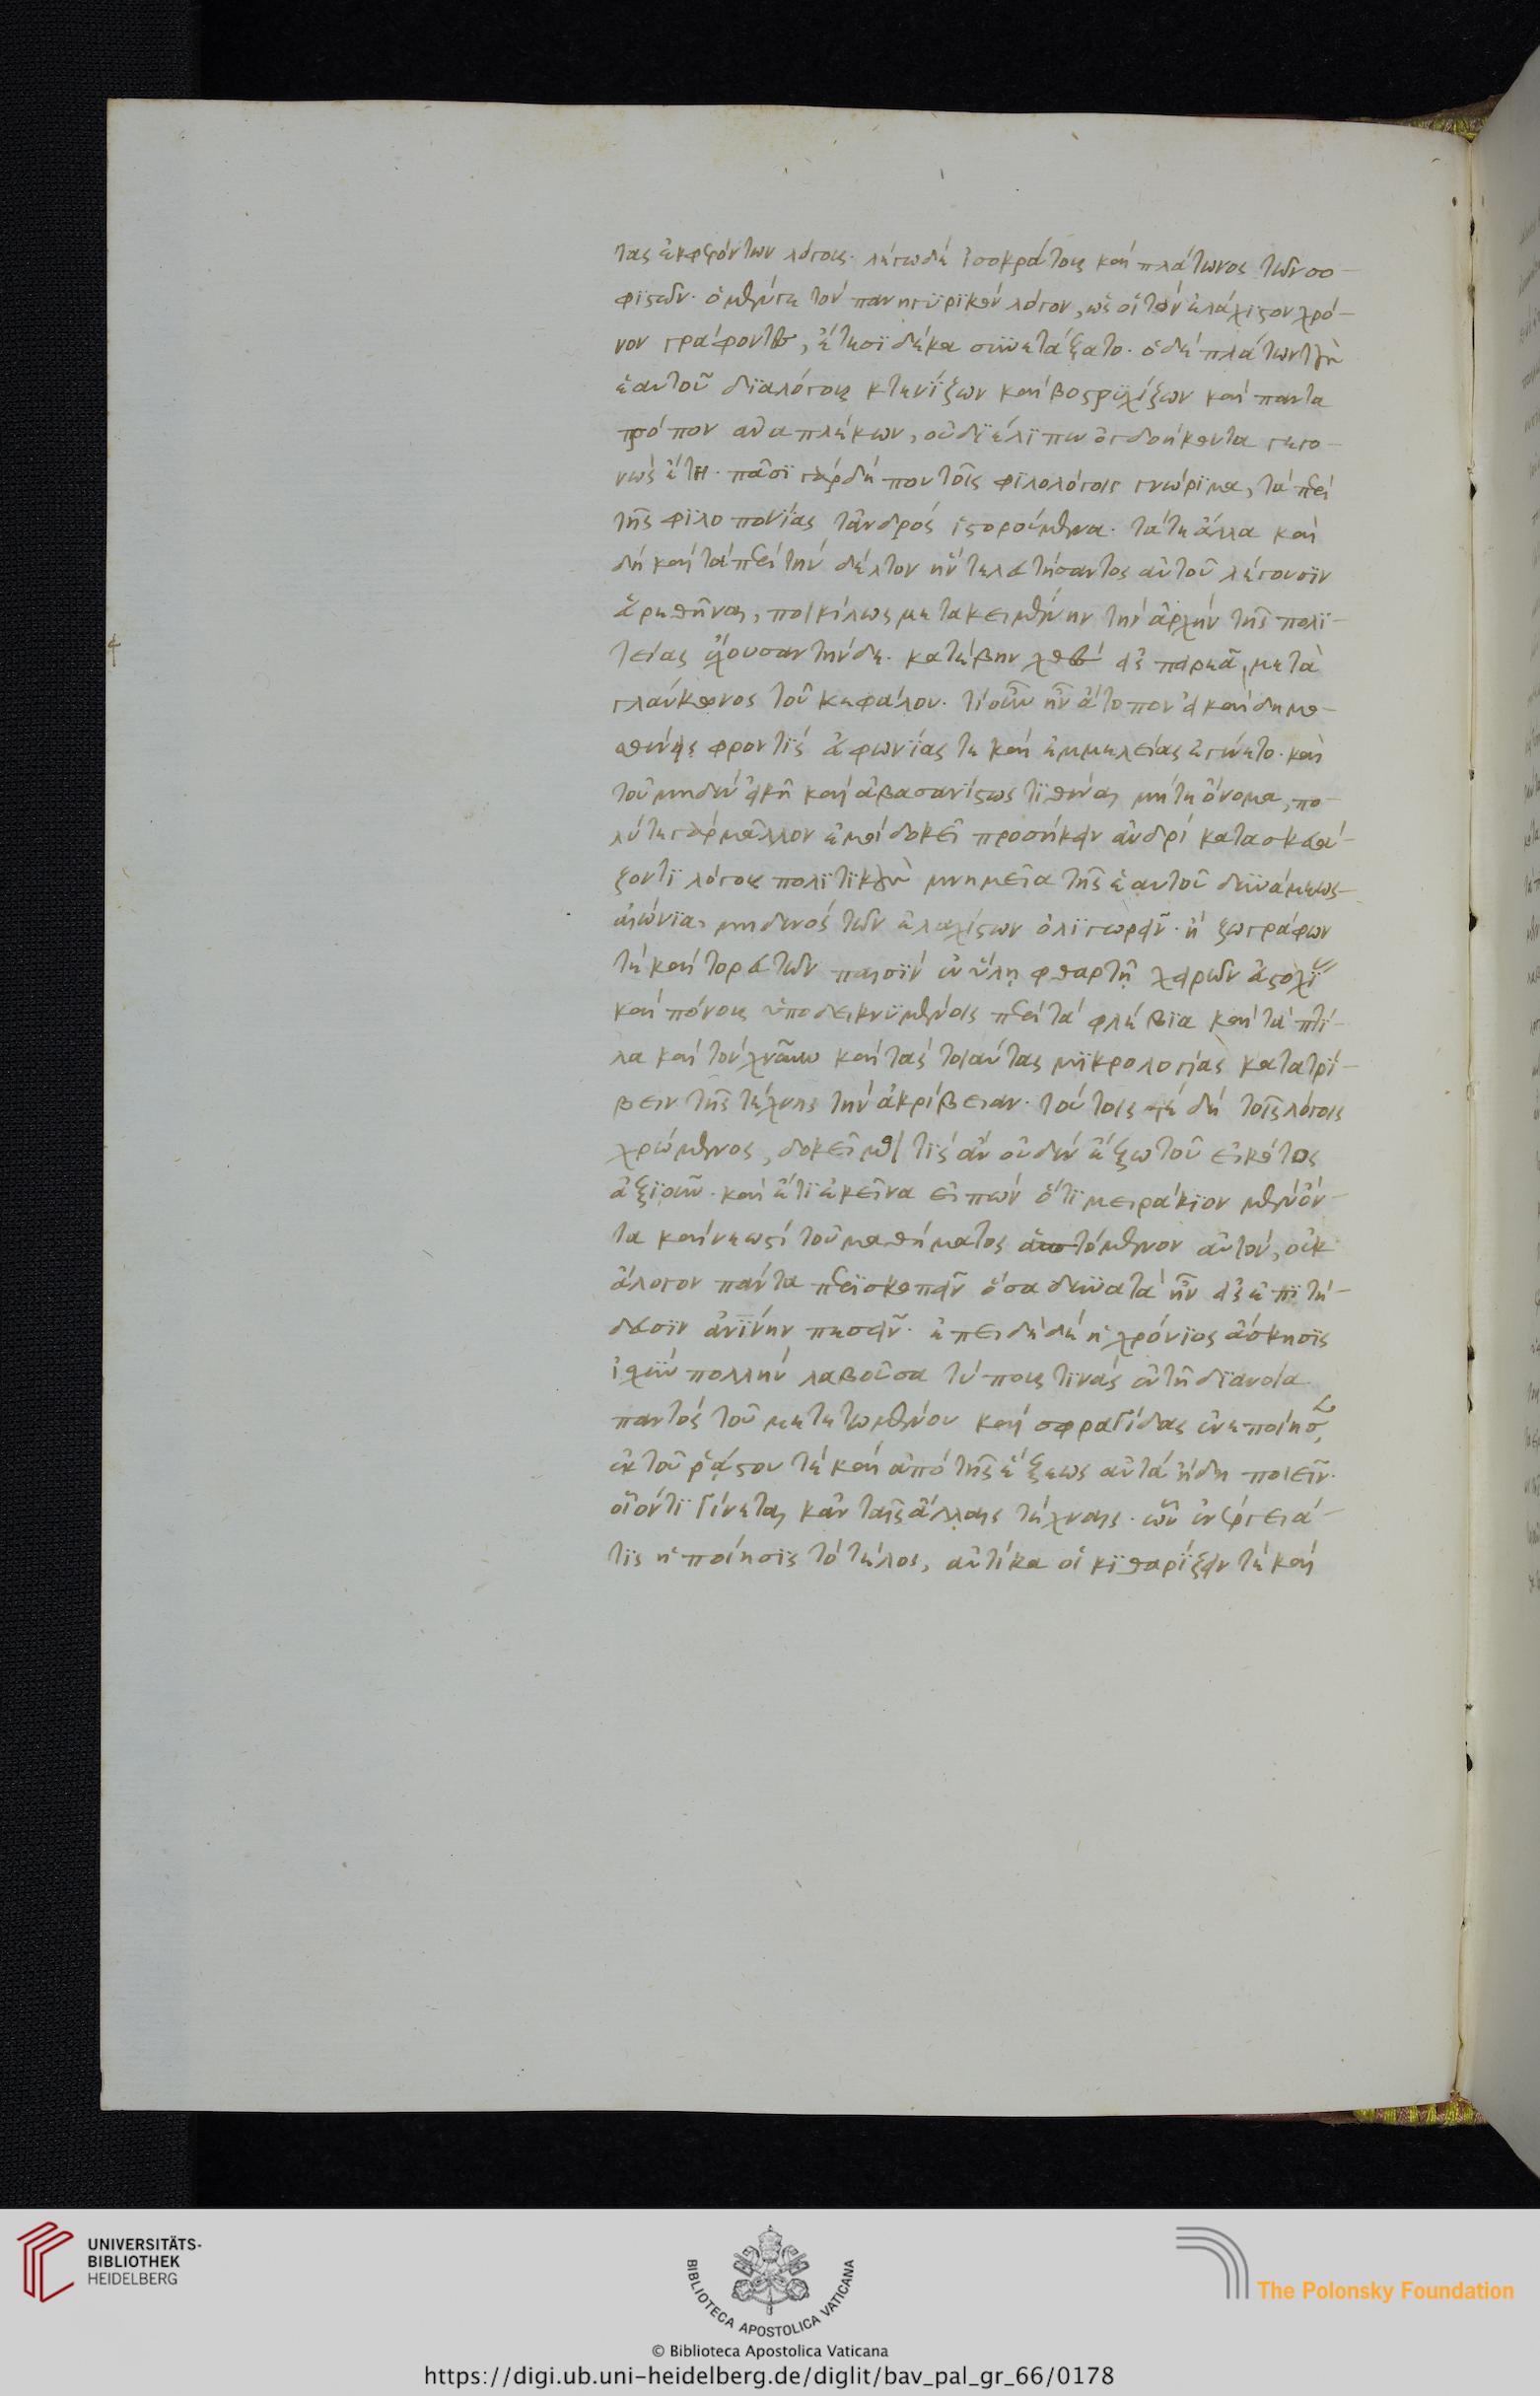 τας ἐκφερόντων λόγους· λέγω δὲ ἰσοκράτους καὶ πλάτωνος τῶν σο-
φιστῶν· ὁ μέν γε τὸν πανηγυρικὸν λόγον, ὡς οἱ τὸν ἐλάχιστον χρό-
νον γράφοντες, ἔτεσι δέκα συνετάξατο· ὁ δὲ πλάτων τοὺς
ἑαυτοῦ διαλόγους κτενίζων καὶ βοστρυχίζων καὶ παντα
τρόπον ἀναπλέκων, οὐ διέλιπεν ὀγδοήκοντα γεγο-
νὼς ἔτη· πᾶσι γὰρ δήπου τοῖς φιλολόγοις γνώριμα, τὰ περὶ
τῆς φιλοπονίας τἀνδρὸς ἱστορούμενα· τά τε ἄλλα καὶ
δὴ καὶ τὰ περὶ τὴν δέλτον ἣν τελευτήσαντος αὐτοῦ λέγουσιν
εὑρεθῆναι, ποικίλως μετακειμένην τὴν ἀρχὴν τῆς πολι-
τείας ἔχουσαν τήνδε· κατέβην χθὲς εἰς πειρεᾶ, μετὰ
γλαύκωνος τοῦ κεφάλου· τί οὖν ἦν ἄτοπον εἰ καὶ δημο-
σθένει φροντὶς εὐφωνίας τε καὶ ἐμμελείας ἐγίνετο· καὶ
τοῦ μηδὲν εἰκῆ καὶ ἀβασανίστως τιθέναι μήτε ὄνομα, πο-
λύ τε γὰρ μᾶλλον ἐμοὶ δοκεῖ προσήκειν ἀνδρὶ κατασκευά-
ζοντι λόγους πολιτικοὺς μνημεῖα τῆς ἑαυτοῦ δυνάμεως
αἰώνια, μηδενὸς τῶν ἐλαχίστων ὀλιγωρεῖν· ἢ ζωγράφων
τὲ καὶ τορευτῶν παισὶν ἐν ὕλῃ φθαρτῇ χειρῶν εὐστοχίας
καὶ πόνους ὑποδεικνυμένοις περὶ τὰ φλέβια καὶ τὰ πτί-
λα καὶ τὸν χνοῦν καὶ τὰς τοιαύτας μικρολογίας κατατρί-
βειν τῆς τέχνης τὴν ἀκρίβειαν· τούτοις τὲ δὴ τοῖς λόγοις
χρώμενος, δοκεῖ μοι τὶς ἂν οὐδὲν ἔξω τοῦ εἰκότος
ἀξιοῦν· καὶ ἔτι ἐκεῖνα εἰπὼν ὅτι μειράκιον μὲν ὄν-
τα καὶ νεωστὶ τοῦ μαθήματος ἁπτόμενον αὐτὸν, οὐκ
ἄλογον πάντα περισκοπεῖν ὅσα δυνατὰ ἦν εἰς ἐπιτή-
δευσιν ἀνίνην πεσεῖν· ἐπειδὴ δὲ ἡ χρόνιος ἄσκησις
ἰσχὺν πολλὴν λαβοῦσα τύπους τινὰς ἐν τῇ διανοία
παντὸς τοῦ μετετωμένου καὶ σφραγίδας ἐνεποίησεν,
ἐκ τοῦ ῥᾴστου τὲ καὶ ἀπὸ τῆς ἕξεως αὐτὰ ἤδη ποιεῖν·
οἷόν τι γίνεται κἀν ταῖς ἄλλαις τέχναις· ὧν ἐνέργειά
τις ἢ ποίησις τὸ τέλος, αὐτίκα οἱ κιθαρίζειν τὲ καὶ
UNIVERSITÄTS-
BIBLIOTHEK
HEIDELBERG
BIBLIOTECA APOSTOLICA VATICANA
The Polonsky Foundation
© Biblioteca Apostolica Vaticana
https://digi.ub.uni-heidelberg.de/diglit/bav_pal_gr_66/0178